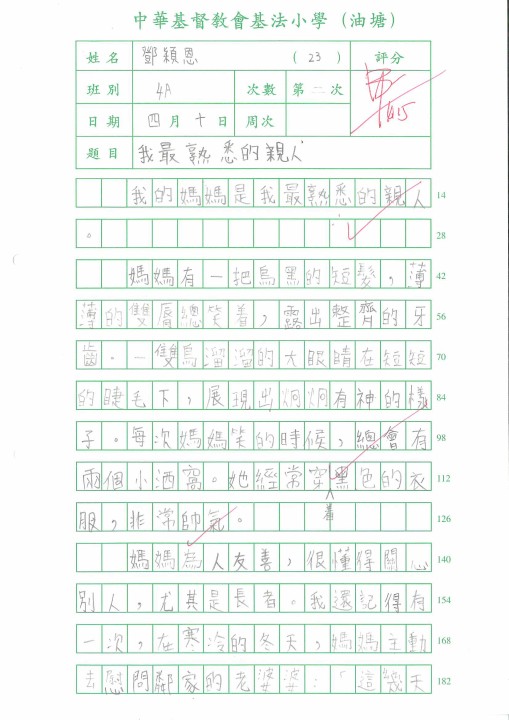 中華基督教會基法小學（油塘）
姓名 鄧穎恩 （23） 評分
班別 4A 次數 第二次
日期 四月十日 周次
題目 我最熟悉的親人
我的媽媽是我最熟悉的親人 14
。 28
媽媽有一把烏黑的短髮，薄 42
薄的雙唇總笑着，露出整齊的牙 56
齒。一雙烏溜溜的大眼睛在短短 70
的睫毛下，展現出炯炯有神的樣 84
子。每次媽媽笑的時候，總會有 98
兩個小酒窩。她經常穿黑色的衣 112
着
服，非常帥氣。 126
媽媽為人友善，很懂得關心 140
別人，尤其是長者。我還記得有 154
一次，在寒冷的冬天，媽媽主動 168
去慰問鄰家的老婆婆：「這幾天 182